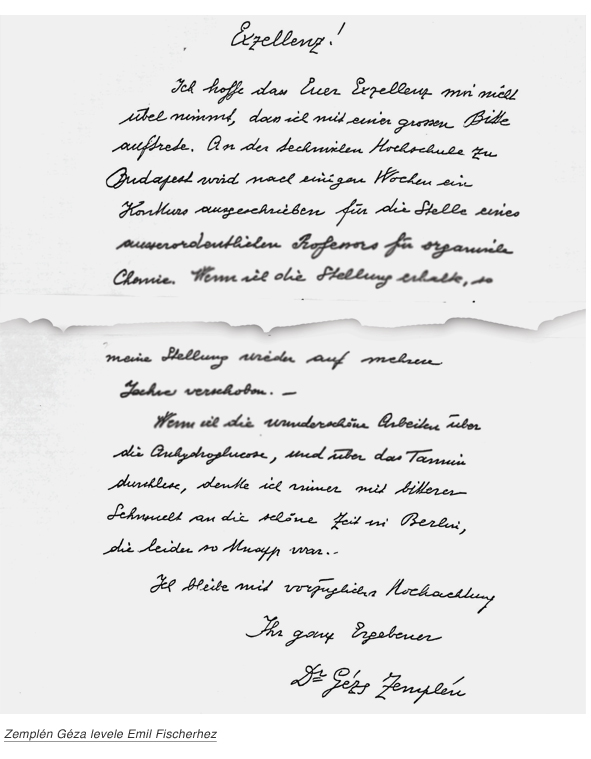 Exzellenz!
Ich hoffe dass Euer Exzellenz mir nicht
übel nimmt, dass ich mit einer grossen Bitte
auftrete. An der technischen Hochschule zu
Budapest wird nach einigen Wochen ein
Konkurs ausgeschrieben für die Stelle eines
ausserordentlichen Professors für organische
Chemie. Wenn ich die Stellung erhalte, so
meine Stellung wieder auf mehrere
Jahre verschoben. —
Wenn ich die wunderschöne Arbeiten über
die Anhydroglucose, und über das Tannin
durchlese, denke ich immer mit bitterer
Sehnsucht an die schöne Zeit in Berlin,
die leider so knapp war.-
Ich bleibe mit vorzüglicher Hochachtung
Ihr ganz Ergebener
Dr Géza Zemplén
Zemplén Géza levele Emil Fischerhez